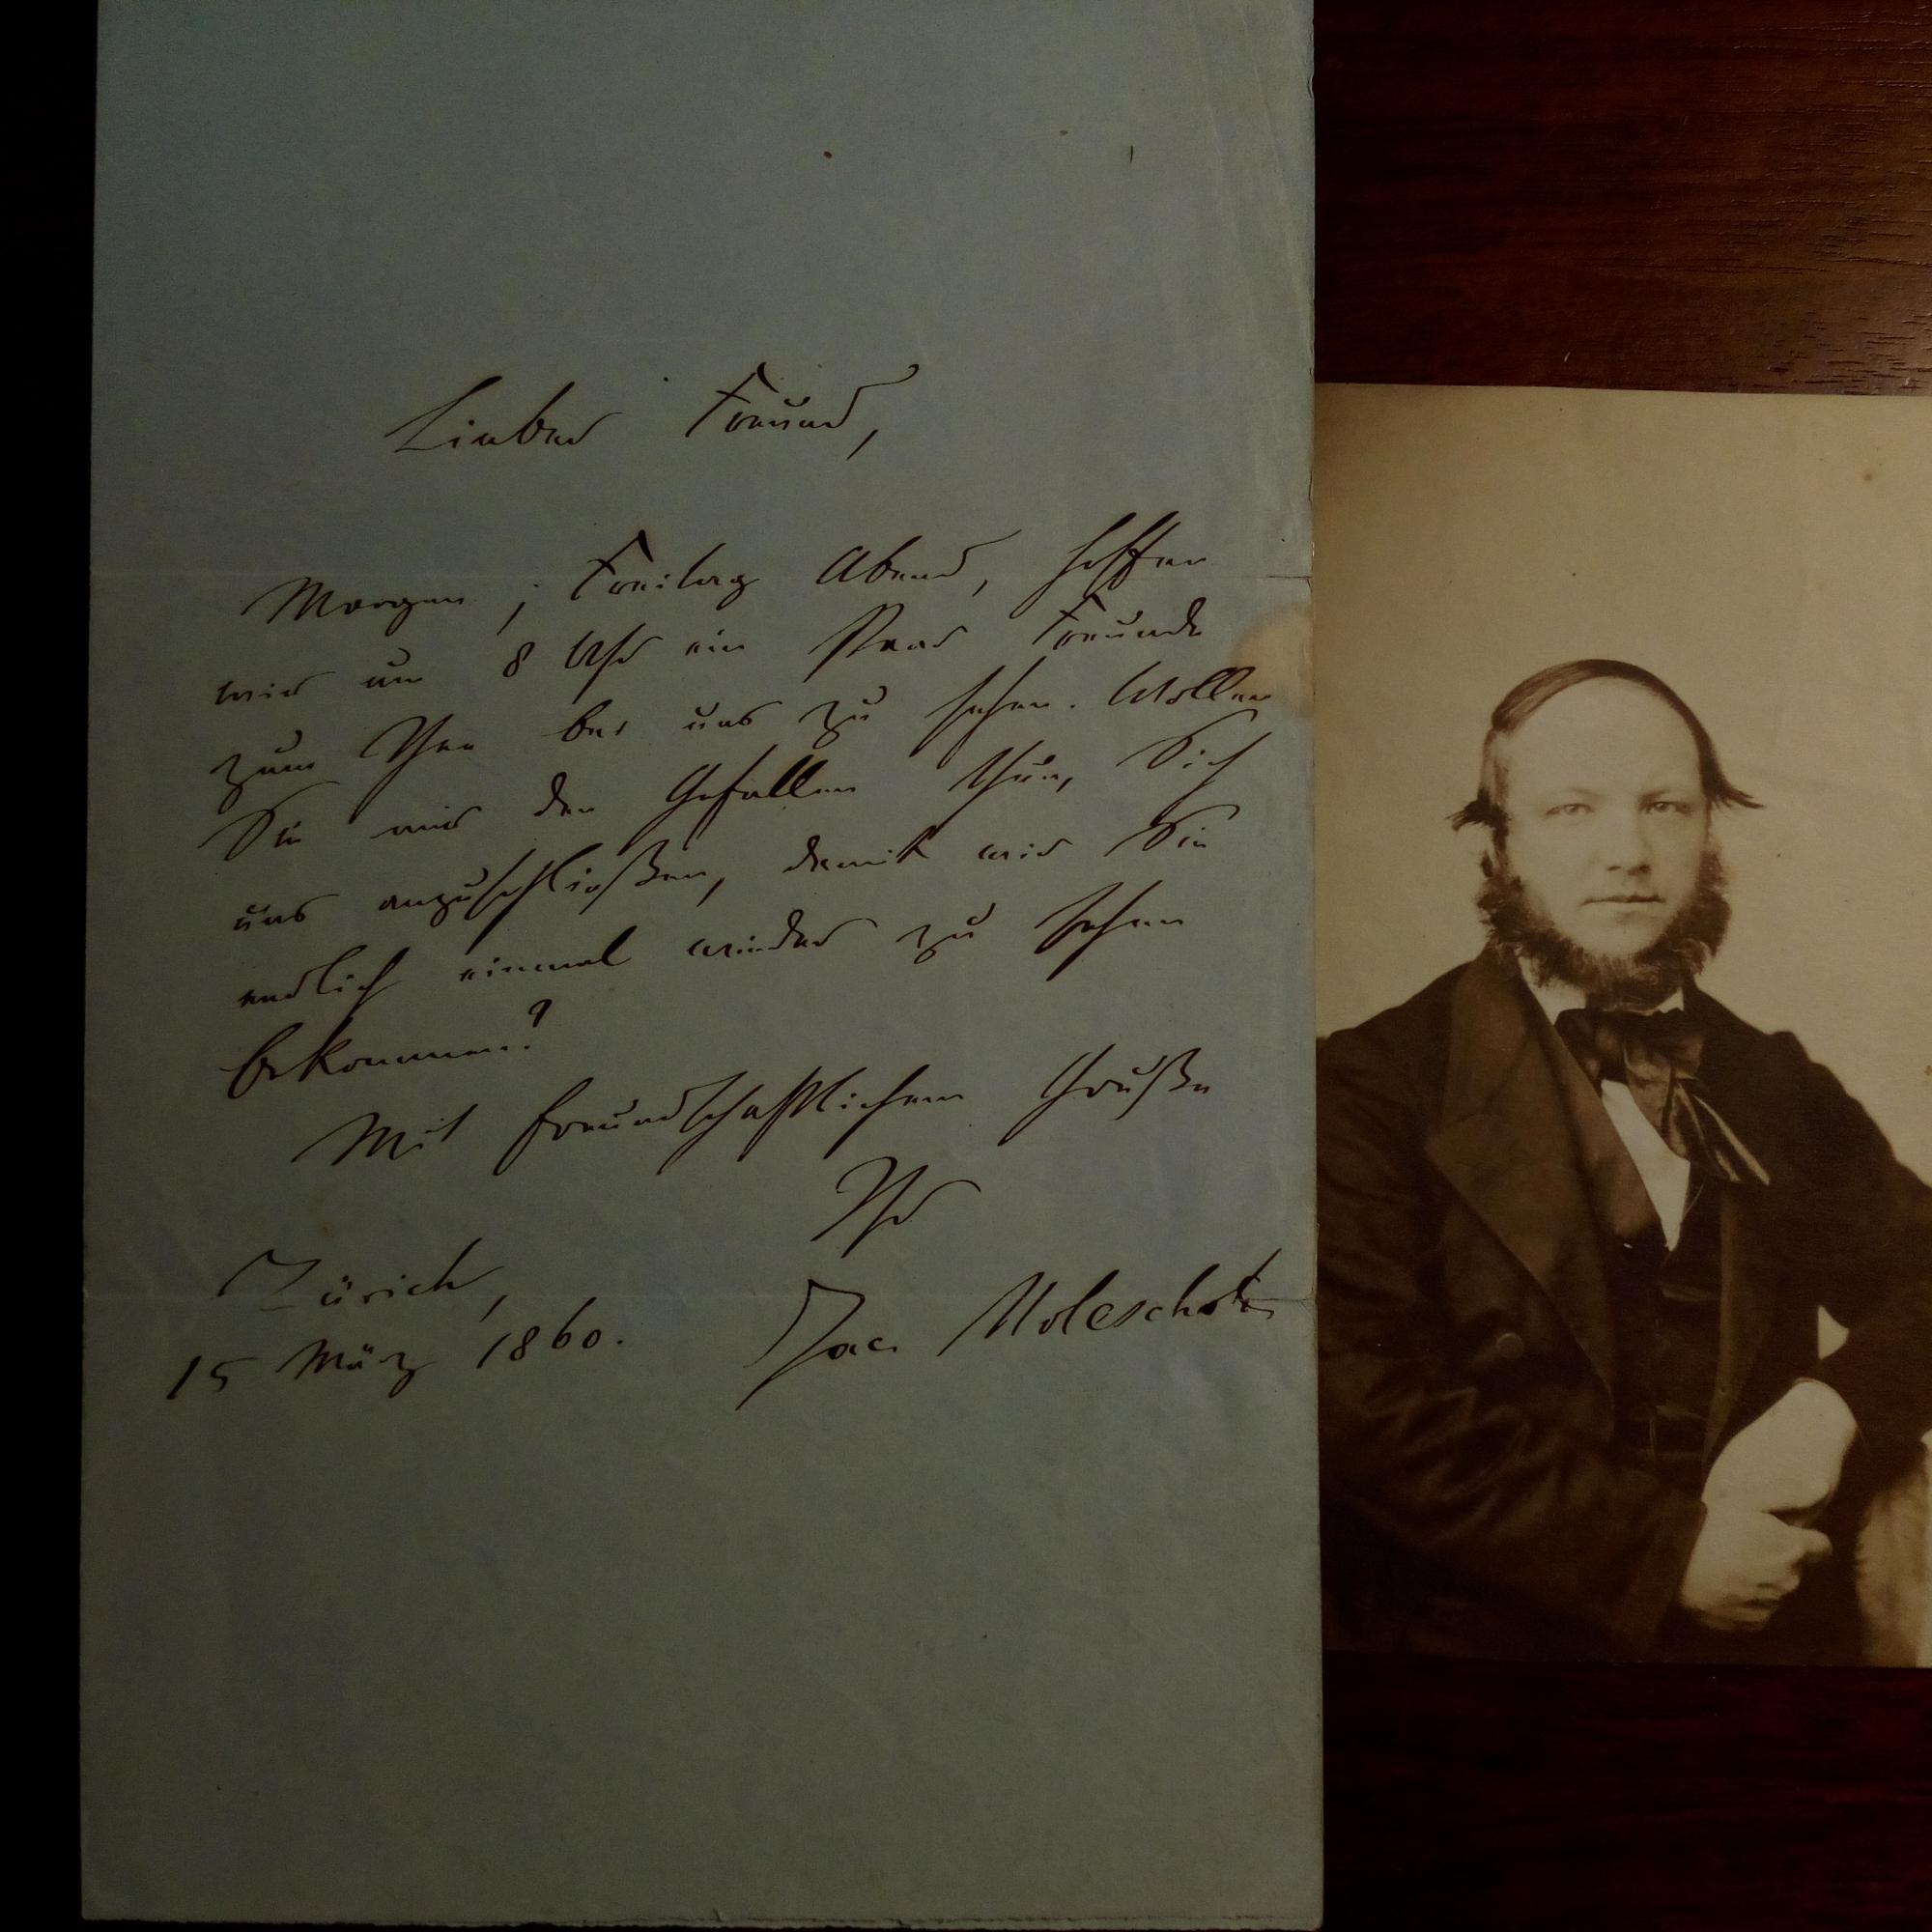 Lieber Freund,
Morgen, Freitag Abend, hoffen
wir um 8 Uhr ein Paar Freunde
zum Thee bei uns zu sehen. Wollen
Sie mir den Gefallen thun, Sich
uns anzuschließen, damit wir Sie
endlich einmal wieder zu sehen
bekommen?
Mit freundschaftlichem Gruße
Ihr
Jac. Moleschott
Zürich,
15 März 1860.